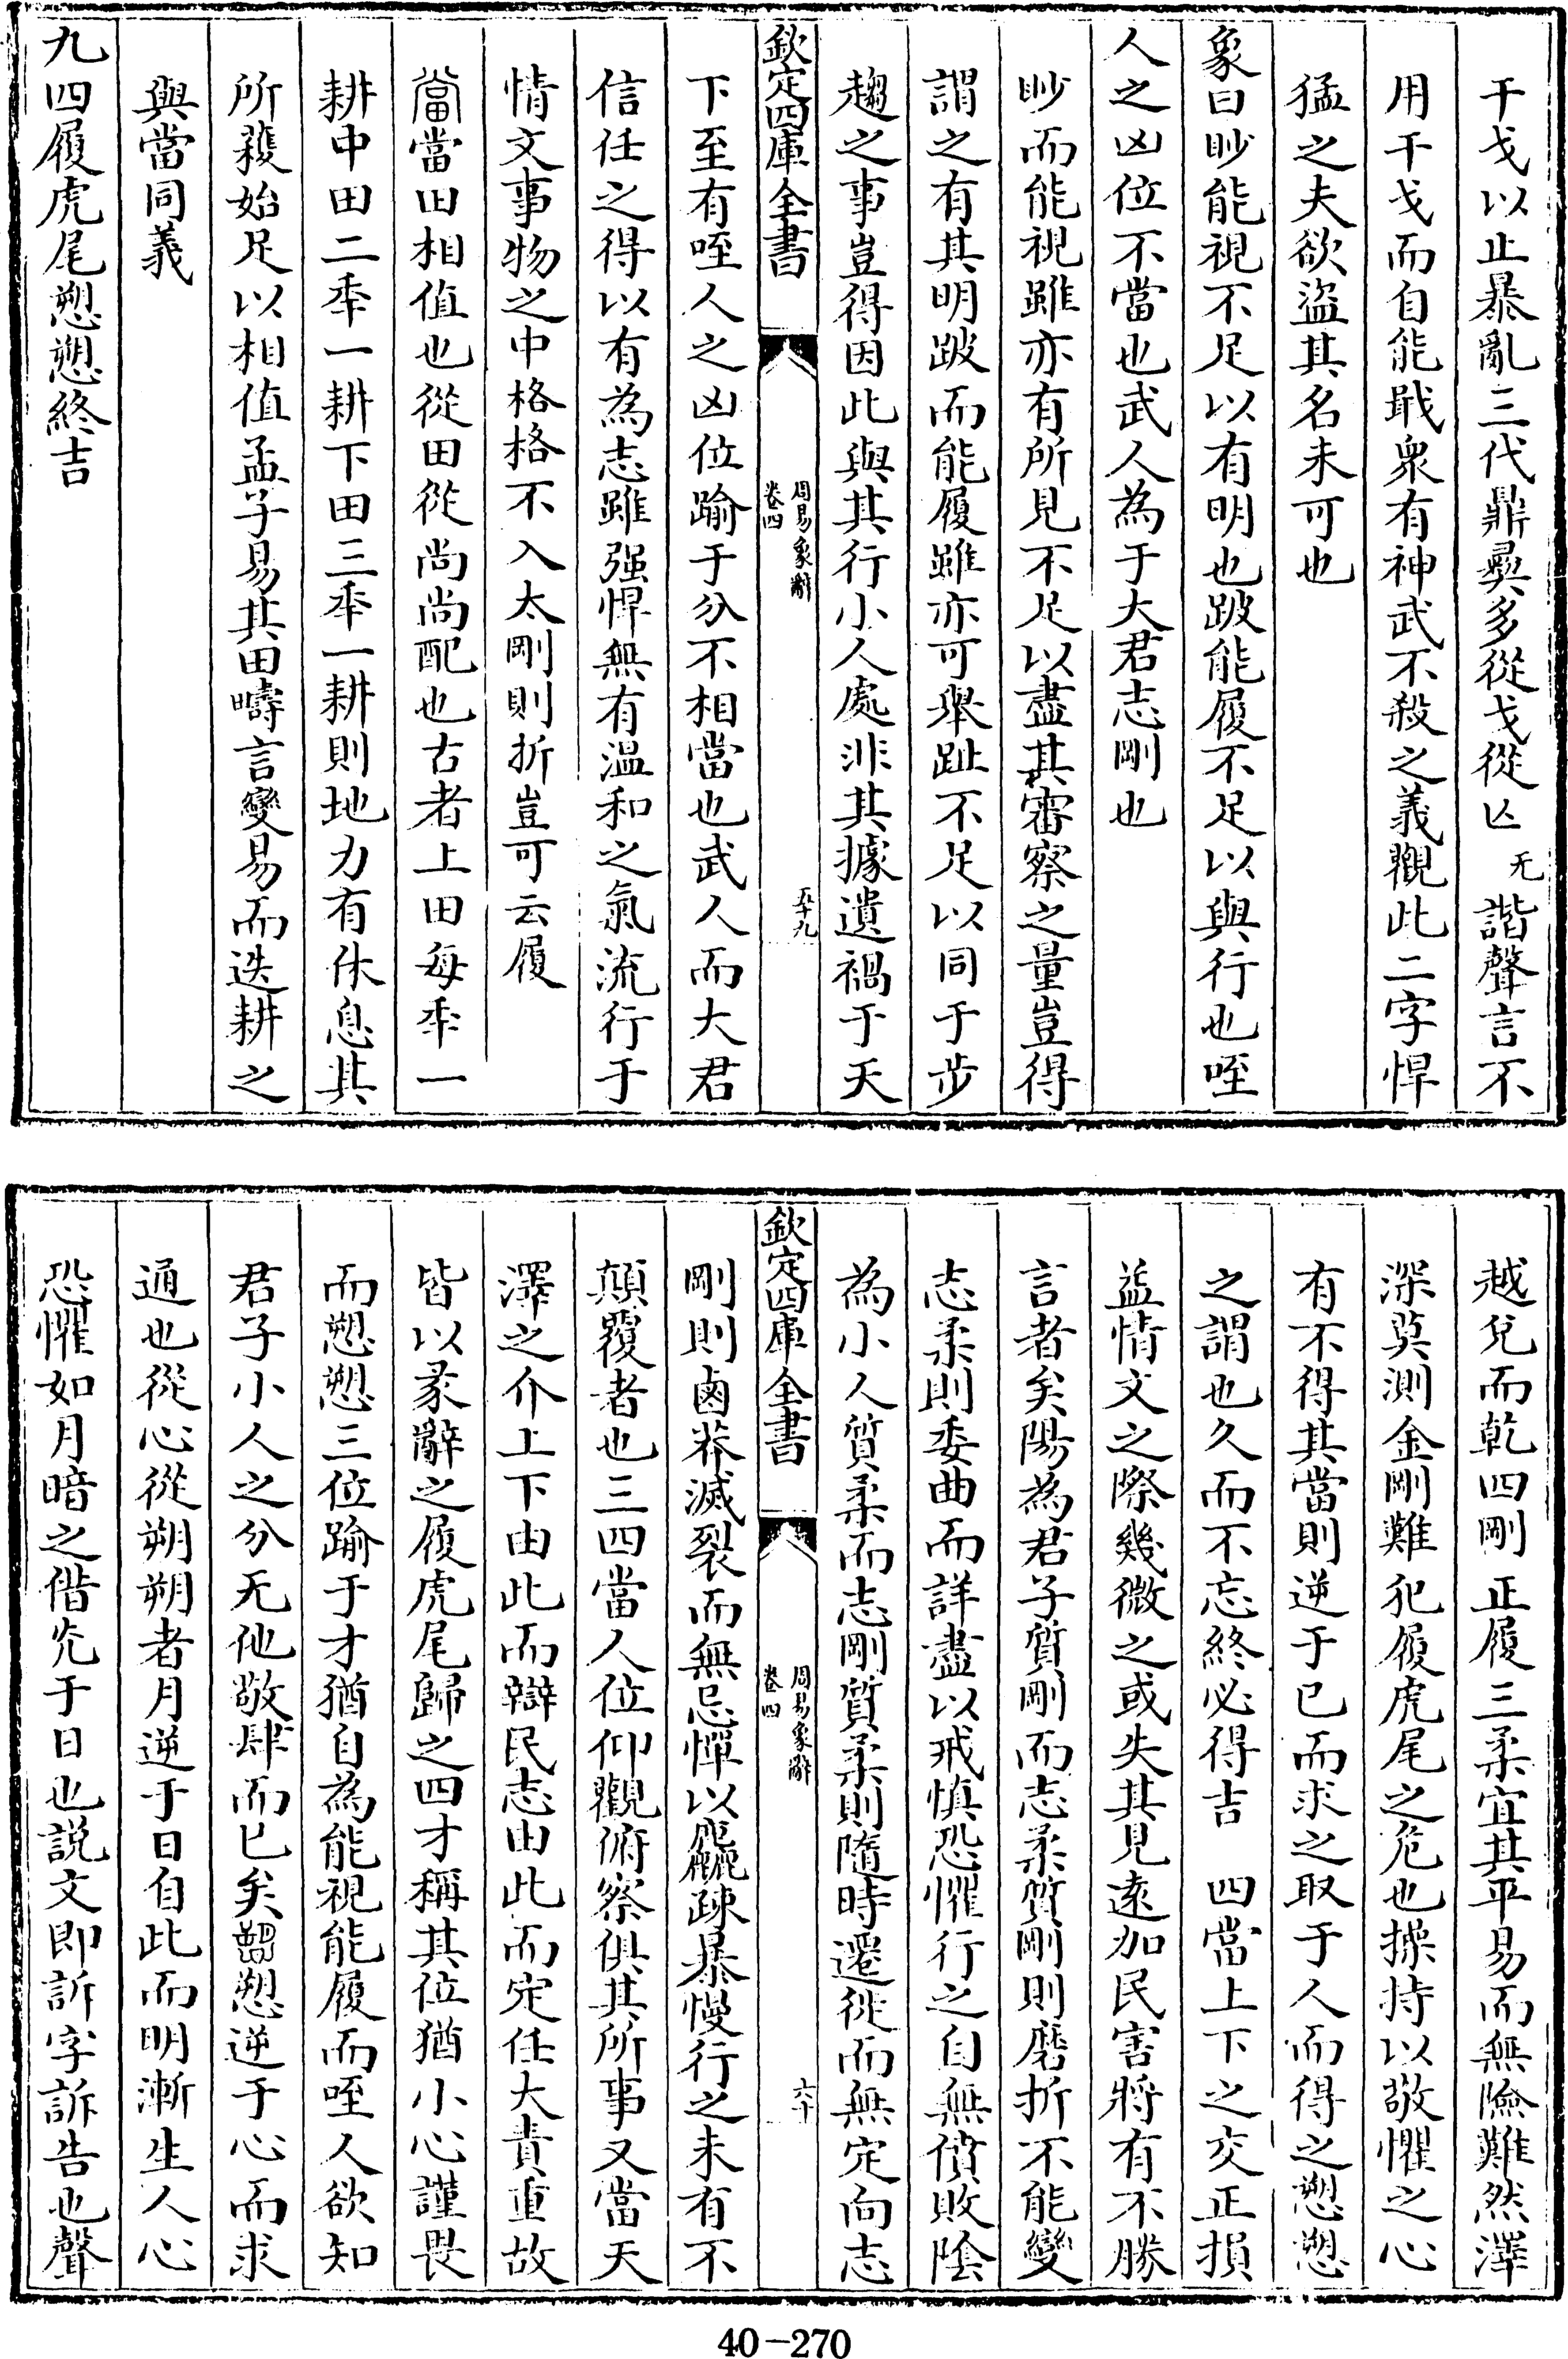 干戈以止暴亂三代鼎彞多從戈從亾无諧聲言不
用干戈而自能戢衆有神武不殺之義觀此二字悍
猛之夫欲盜其名未可也
象曰眇能視不足以有明也跛能履不足以與行也咥
人之凶位不當也武人為于大君志剛也
眇而能視雖亦有所見不足以盡其審察之量豈得
謂之有其明跛而能履雖亦可舉趾不足以同于步
趨之事豈得因此與其行小人處非其據遺禍于天
欽定四庫全書
周易象辭
卷四
五十九
下至有咥人之凶位踰于分不相當也武人而大君
信任之得以有為志雖强悍無有溫和之氣流行于
情文事物之中格格不入太剛則折豈可云履
當田相值也從田從尚尚配也古者上田每秊一
耕中田二秊一耕下田三秊一耕則地力有休息其
所穫始足以相值孟子易其田疇言變易而迭耕之
與當同義
九四履虎尾愬愬終吉
越兌而乾四剛正履三柔宜其平易而無險難然澤
深莫測金剛難犯履虎尾之危也操持以敬懼之心
有不得其當則逆于已而求之取于人而得之愬愬
之謂也久而不忘終必得吉　四當上下之交正損
益情文之際幾微之或失其見遠加民害將有不勝
言者矣陽為君子質剛而志柔質剛則磨折不能變
志柔則委曲而詳盡以戒慎恐懼行之自無僨敗陰
為小人質柔而志剛質柔則隨時遷徙而無定向志
欽定四庫全書
周易象辭
卷四
六十
剛則鹵莽滅裂而無忌憚以麤疎暴慢行之未有不
顛覆者也三四當人位仰觀俯察俱其所事又當天
澤之介上下由此而辯民志由此而定任大責重故
皆以彖辭之履虎尾歸之四才稱其位猶小心謹畏
而愬愬三位踰于才猶自為能視能履而咥人欲知
君子小人之分无他敬肆而已矣愬逆于心而求
通也從心從朔朔者月逆于日自此而明漸生人心
恐懼如月暗之偕兊于日也說文即訴字訴告也聲
40-270